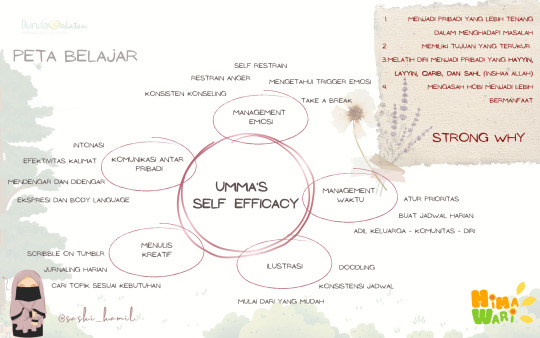 Bunda Cekatan
PETA BELAJAR
1. MENJADI PRIBADI YANG LEBIH TENANG
DALAM MENGHADAPI MASALAH
2. MEMILIKI TUJUAN YANG TERUKUR
3.MELATIH DIRI MENJADI PRIBADI YANG HAYYIN,
LAYYIN, QARIB, DAN SAHL (INSHAA ALLAH)
4. MENGASAH HOBI MENJADI LEBIH
BERMANFAAT
STRONG WHY
SELF RESTRAIN
RESTRAIN ANGER
MENGETAHUI TRIGGER EMOSI
KONSISTEN KONSELING
TAKE A BREAK
MANAGEMENT
EMOSI
INTONASI
EFEKTIVITAS KALIMAT
KOMUNIKASI ANTAR
PRIBADI
MENDENGAR DAN DIDENGAR
EKSPRESI DAN BODY LANGUAGE
UMMA'S
SELF EFFICACY
MANAGEMENT
WAKTU
ATUR PRIORITAS
BUAT JADWAL HARIAN
ADIL KELUARGA - KOMUNITAS - DIRI
MENULIS
KREATIF
SCRIBBLE ON TUMBLR
JURNALING HARIAN
CARI TOPIK SESUAI KEBUTUHAN
ILUSTRASI
DOODLING
KONSISTENSI JADWAL
MULAI DARI YANG MUDAH
@saski_hamil
HIMA
WARI